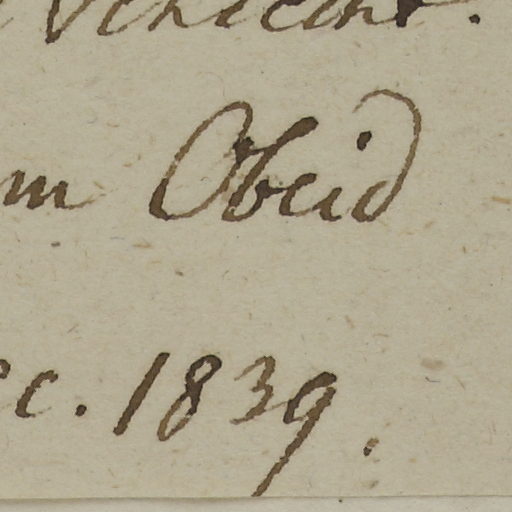 m Obeid
ec. 1839.